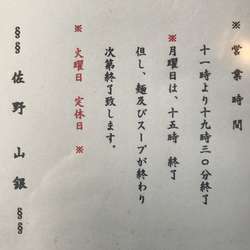 ※営業時間
十一時より十九時三〇分終了
※月曜日は、十五時 終了
但し、麺及びスープが終わり
次第終了致します。
※火曜日 定休日※
§§佐野山銀§§